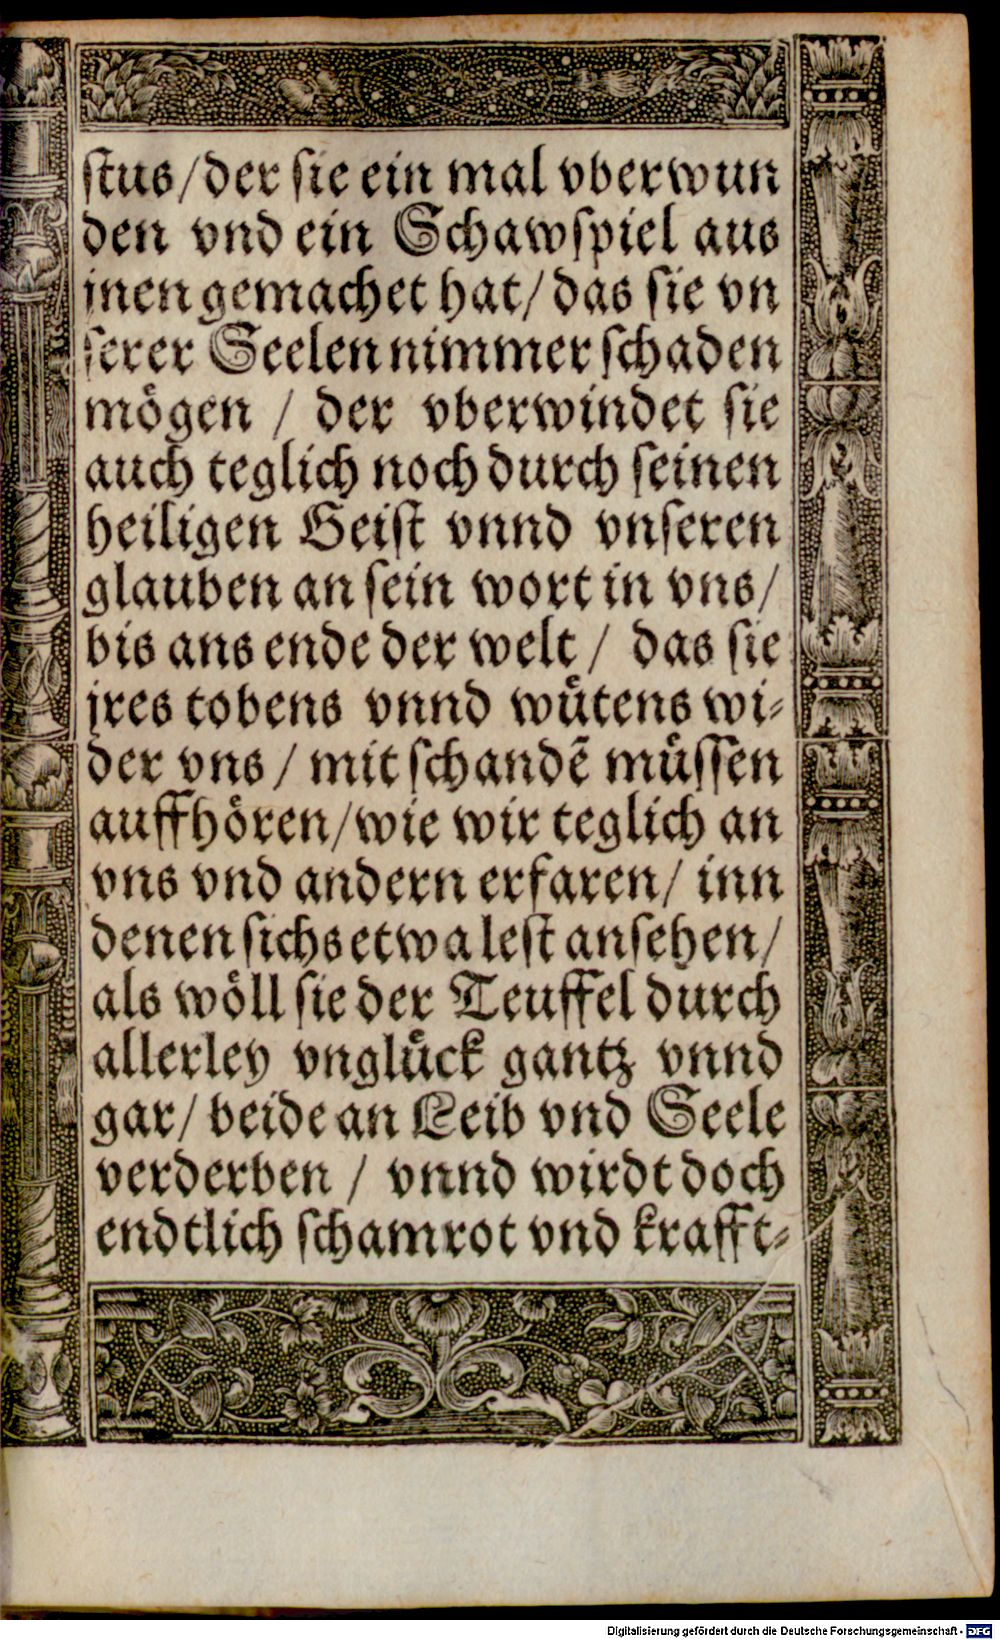 stus/der sie ein mal vberwun
den vnd ein Schawspiel aus
jnen gemachet hat/ das sie vn
serer Seelen nimmer schaden
mögen / der vberwindet sie
auch teglich noch durch seinen
heiligen Geist vnnd vnseren
glauben an sein wort in vns/
bis ans ende der welt / das sie
jres tobens vnnd wütens wi-
der vns / mit schandē müssen
auffhören/wie wir teglich an
vns vnd andern erfaren/ inn
denen sichs etwa lest ansehen/
als wöll sie der Teuffel durch
allerley vnglück gantz vnnd
gar/ beide an Leib vnd Seele
verderben / vnnd wirdt doch
endtlich schamrot vnd krafft-
Digitalisierung gefördert durch die Deutsche Forschungsgemeinschaft - DFG